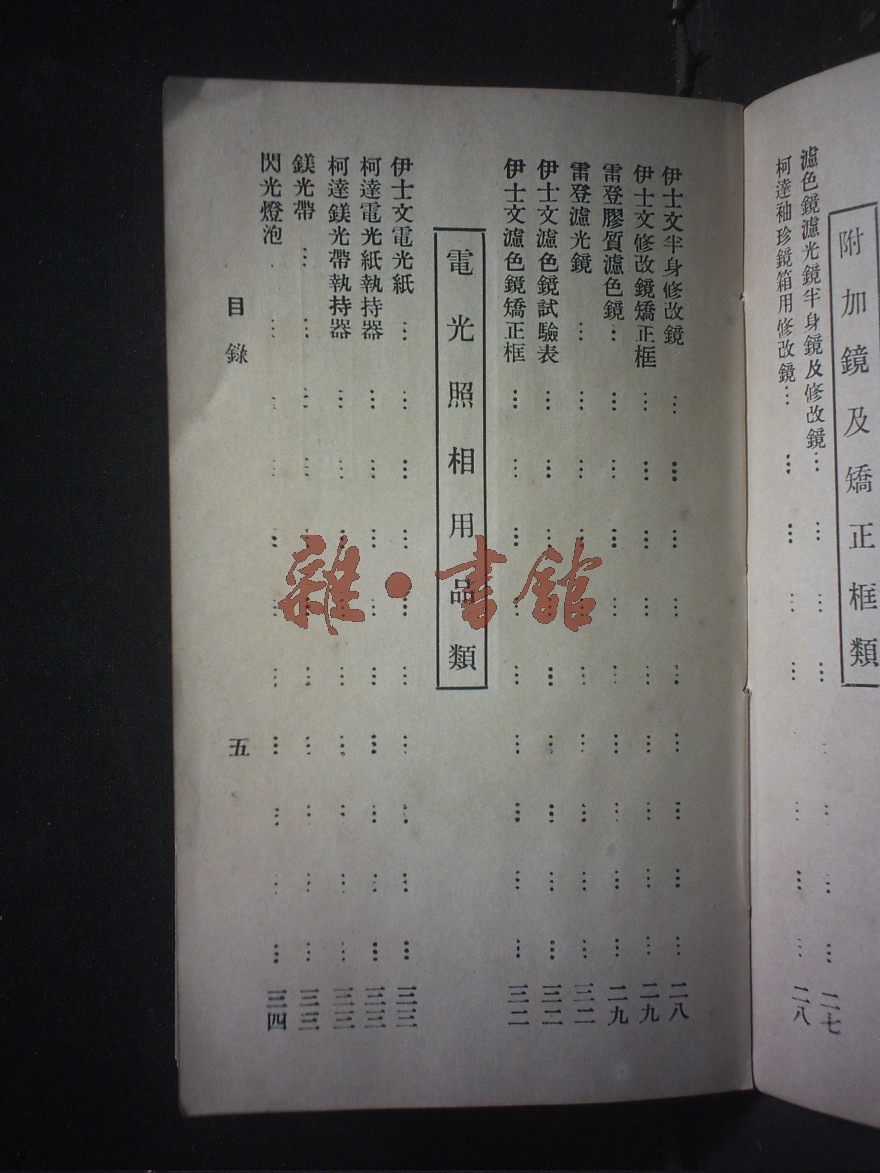 附加鏡及矯正框類
濾色鏡濾光鏡半身鏡及修改鏡⋯⋯⋯⋯⋯⋯⋯⋯二七
柯達袖珍鏡箱用修改鏡⋯⋯⋯⋯⋯⋯⋯⋯二八
伊士文半身修改鏡⋯⋯⋯⋯⋯⋯⋯⋯⋯二八
伊士文修改鏡矯正框⋯⋯⋯⋯⋯⋯⋯⋯⋯二九
雷登膠質濾色鏡⋯⋯⋯⋯⋯⋯⋯⋯⋯⋯二九
雷登濾光鏡⋯⋯⋯⋯⋯⋯⋯⋯⋯⋯三二
伊士文濾色鏡試驗表⋯⋯⋯⋯⋯⋯⋯⋯⋯三二
伊士文濾色鏡矯正框⋯⋯⋯⋯⋯⋯⋯⋯⋯三二
電光照相用品類
伊士文電光紙⋯⋯⋯⋯⋯⋯⋯⋯⋯⋯三三
柯達電光紙執持器⋯⋯⋯⋯⋯⋯⋯⋯⋯三三
柯達鎂光帶執持器⋯⋯⋯⋯⋯⋯⋯⋯⋯三三
鎂光帶⋯⋯⋯⋯⋯⋯⋯⋯⋯⋯⋯三三
閃光燈泡⋯⋯⋯⋯⋯⋯⋯⋯⋯⋯⋯三四
目錄
五
雜·書館